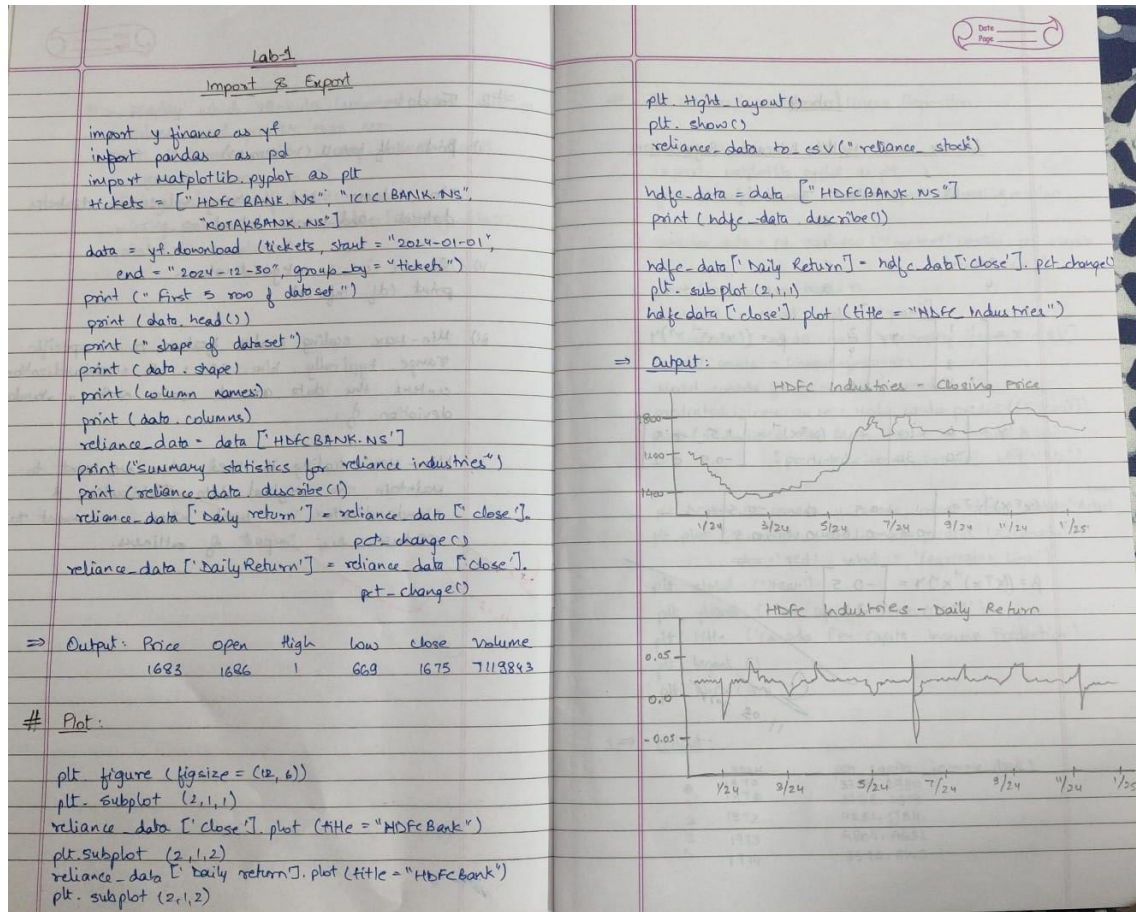 Lab-1
Import & Export
import y finance as yf
import pandas as pd
import Matplotlib.pyplot as plt
tickets = ["HDFC BANK.NS", "ICICIBANK.NS",
"KOTAKBANK.NS"]
data = yf.download (tickets, start = "2024-01-01",
end = "2024-12-30", group_by = "tickets")
print (" First 5 row of dataset ")
print (data.head())
print (" shape of dataset ")
print (data.shape)
print (column names:)
print (data.columns)
reliance_data = data ['HDFCBANK.NS']
print ("summary statistics for reliance industries")
print (reliance_data.describe())
reliance_data ['Daily return'] = reliance_data ['close'].
pct_change()
reliance_data ['DailyReturn'] = reliance_data ['close'].
pct_change()
⇒ Output: Price open High low close volume
1683 1686 1 669 1675 7119843
# Plot:
plt. figure (figsize = (12, 6))
plt. subplot (2,1,1)
reliance_data ['close'].plot (title = "HDFC Bank")
plt.subplot (2,1,2)
reliance_data ['Daily return'].plot (title = "HDFC Bank")
plt. subplot (2,1,2)
Date
Page
plt. tight_layout()
plt. show()
reliance_data to_csv("reliance_stock")
hdfc-data = data ["HDFCBANK.NS"]
print (hdfc_data.describe())
hdfc_data['Daily Return'] = hdfc_data['close'].pct_change()
plt. subplot (2,1,1)
hdfc data ['close'].plot (title = "HDFC Industries")
⇒ Output:
HDFC Industries - Closing Price
1800
1600
1400
1/24 3/24 5/24 7/24 9/24 11/24 1/25
HDFC Industries - Daily Return
0.05
0.0
-0.05
1/24 3/24 5/24 7/24 9/24 11/24 1/25